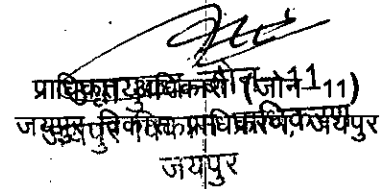 प्राधिकृत अधिकारी (जोन-11)
जयपुर विकास प्राधिकरण, जयपुर
जयपुर